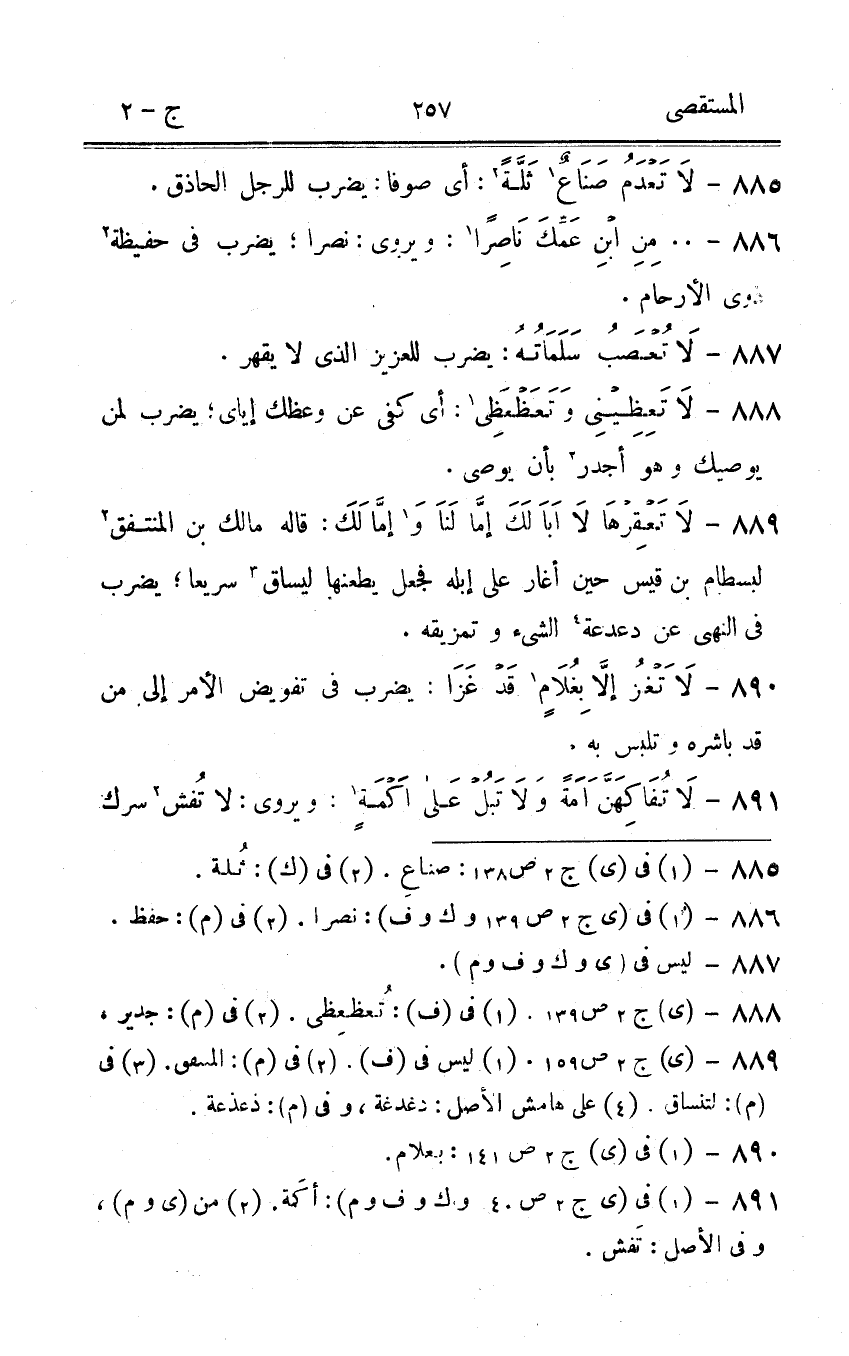 المستقصى ٢٥٧ ج – ٢
٨٨٥ – لَا تَعْدَمُ صَنَاعٌ¹ ثَلَّةً² : أى صوفا : يضرب للرجل الحاذق .
٨٨٦ – ٠٠ مِنِ ابْنِ عَمِّكَ نَاصِرًا¹ : و يروى : نصرا ؛ يضرب فى حفيظة²
ذوى الأرحام .
٨٨٧ – لَا تُعْصَبُ سَلَمَاتُهُ : يضرب للعزيز الذى لا يقهر .
٨٨٨ – لَا تَعِظِيْنِى وَ تَعَظْعَظِى¹ : أى كفى عن وعظك إياى ؛ يضرب لمن
يوصيك و هو أجدر² بأن يوصى .
٨٨٩ – لَا تَعْقِرْهَا لَا اَبَا لَكَ اِمَّا لَنَا وَ¹ اِمَّا لَكَ : قاله مالك بن المنتفق²
لبسطام بن قيس حين أغار على إبله فجعل يطعنها ليساق³ سريعا ؛ يضرب
فى النهى عن دعدعة⁴ الشىء و تمزيقه .
٨٩٠ – لَا تَغْزُ اِلَّا بِغُلَامٍ¹ قَدْ غَزَا : يضرب فى تفويض الأمر إلى من
قد باشره و تلبس به .
٨٩١ – لَا تُفَاكِهَنَّ اَمَةً وَ لَا تَبُلْ عَلىٰ اَكْمَةٍ¹ : و يروى : لا تُفش² سرك
٨٨٥ – (١) فى (ى) ج ٢ ص ١٣٨ : صناعِ . (٢) فى (ك) : ثُلة .
٨٨٦ – (١) فى (ى ج ٢ ص ١٣٩ و ك و ف) : نصرا . (٢) فى (م) : حفظ .
٨٨٧ – ليس فى (ى و ك و ف و م) .
٨٨٨ – (ى) ج ٢ ص ١٣٩ . (١) فى (ف) : تُعظعِظى . (٢) فى (م) : جدير ،
٨٨٩ – (ى) ج ٢ ص ١٥٩ . (١) ليس فى (ف) . (٢) فى (م) : المسفق . (٣) فى
(م) : لتنساق . (٤) على هامش الأصل : دغدغة ، و فى (م) : ذعذعة .
٨٩٠ – (١) فى (ى) ج ٢ ص ١٤١ : بعلام .
٨٩١ – (١) فى (ى ج ٢ ص ٤٠ و ك و ف و م) : أكَمة . (٢) من (ى و م) ،
و فى الأصل : تَفش .